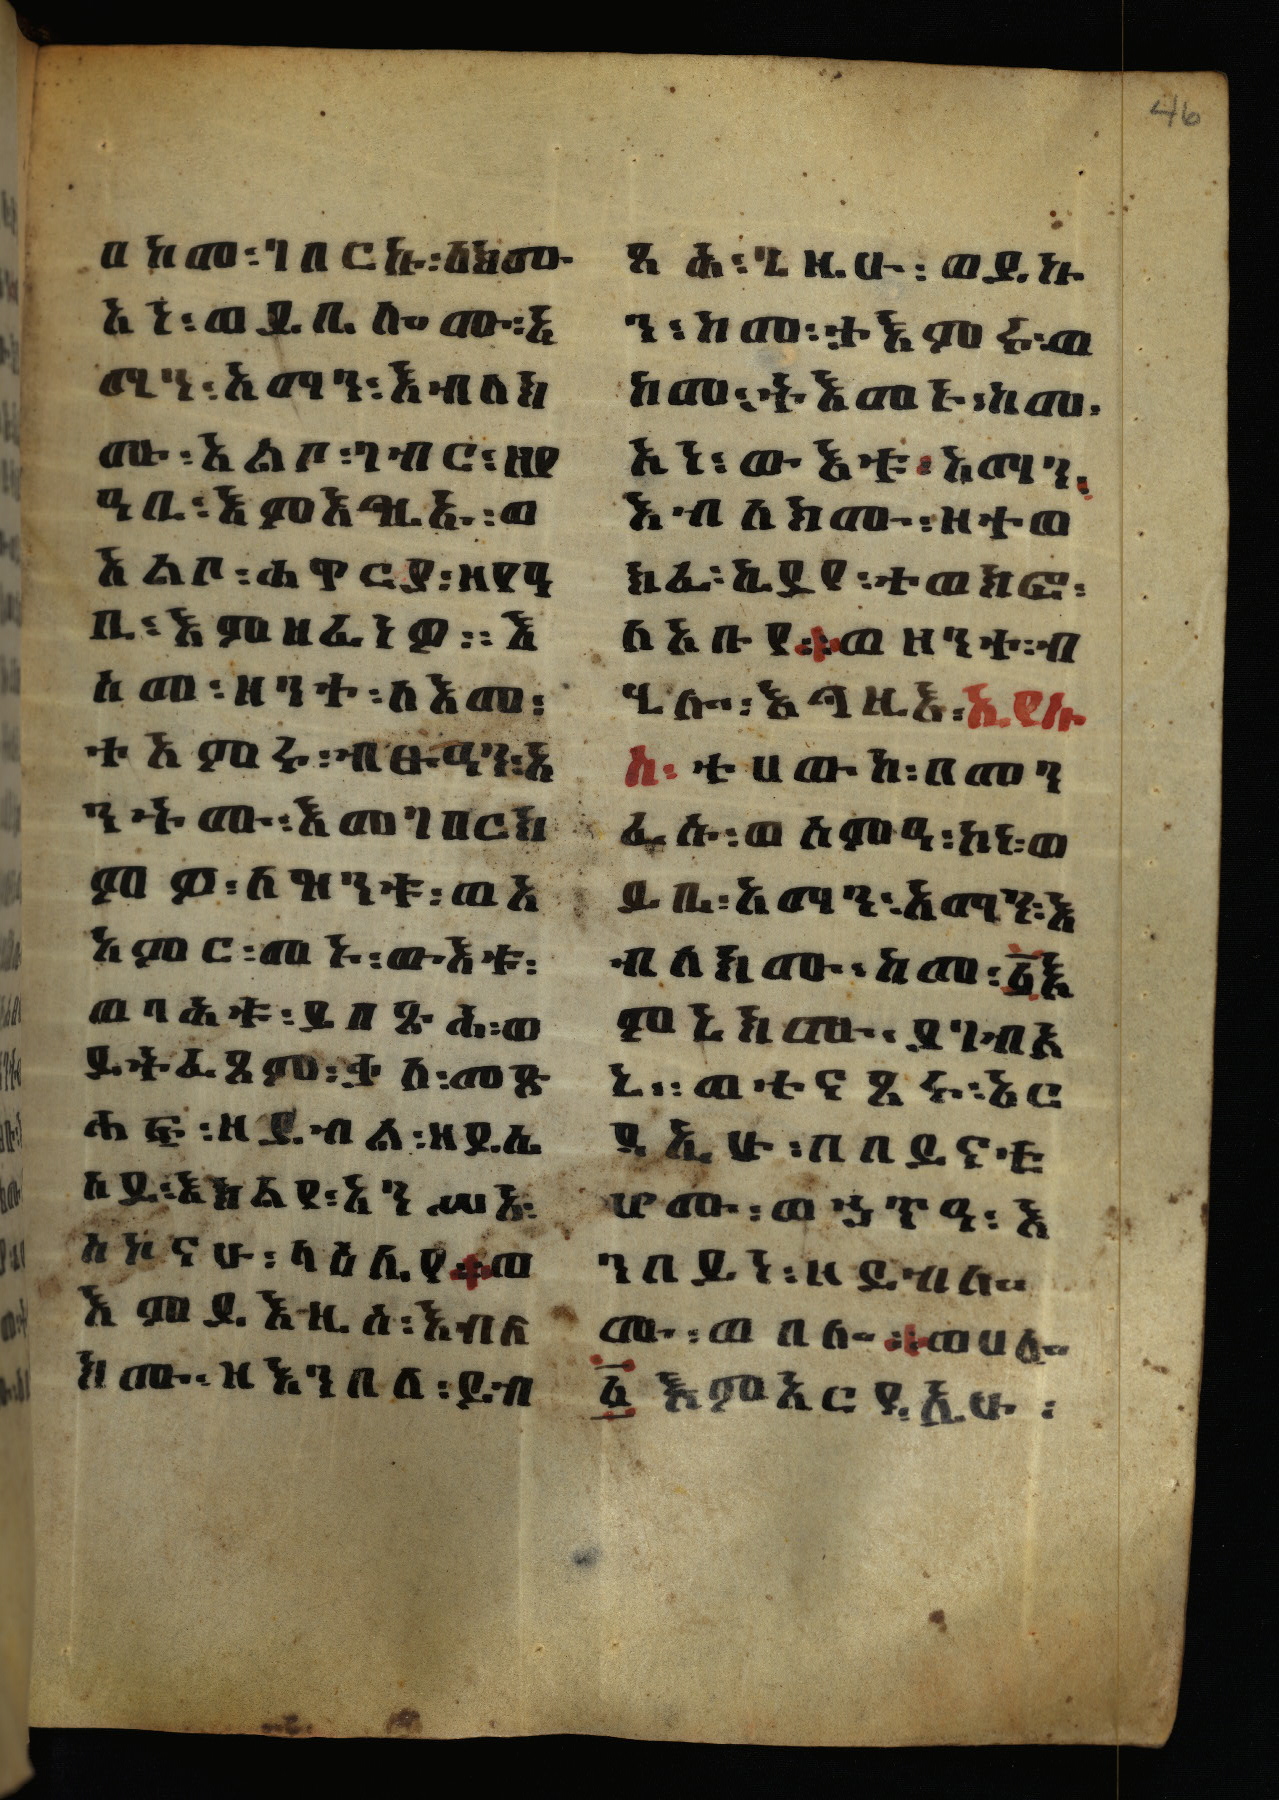 በከመ፡ገበርኩ፡ለክሙ
አነ፡ወይቤሎሙ፡አ
ማን፡አማን፡እብለክ
ሙ፡አልቦ፡ገብር፡ዘየ
ዓቢ፡እምእግዚኡ፡ወ
አልቦ፡ሐዋርያ፡ዘየዓ
ቢ፡እምዘፈነዎ፡፡እ
ስመ፡ዘንተ፡ለእመ፡
ተአምሩ፡ብፁዓን፡አ
ንትሙ፡እመገበርክ
ምዎ፡ለዝንቱ፡ወአ
አምር፡መኑ፡ውእቱ፡
ወባሕቱ፡ይበጽሕ፡ወ
ይትፌጸም፡ቃለ፡መጽ
ሐፍ፡ዘይብል፡ዘይሴ
ሰይ፡እክልየ፡አንሥአ፡
ሰኰናሁ፡ላዕሌየ፡ወ
እምይእዜሰ፡እብለ
ክሙ፡ዘእንበለ፡ይብ
46
ጻሕ፡ጊዜሁ፡ወይኩ
ን፡ከመ፡ተአምሩ፡ወ
ከመ፡ትእመኑ፡ከመ፡
አነ፡ውእቱ፡አማን፡
እብለክሙ፡ዘተወ
ክፈ፡ኪያየ፡ተወክፎ፡
ለአቡየ፡ወዘንተ፡ብ
ሂሎ፡እግዚእ፡ኢየሱ
ስ፡ተሀውከ፡በመን
ፈሱ፡ወስምዓ፡ኮነ፡ወ
ይቤ፡አማን፡አማን፡እ
ብለክሙ፡ከመ፡፩እ
ምኔክሙ፡ያገብአ
ኒ፡ወተናጸሩ፡አር
ዳኢሁ፡በበይናቲ
ሆሙ፡ወኃጥዓ፡እ
ንበይነ፡ዘይብሎ
ሙ፡ወበሎ፡ወሀሎ
፩እምአርዳኢሁ፡